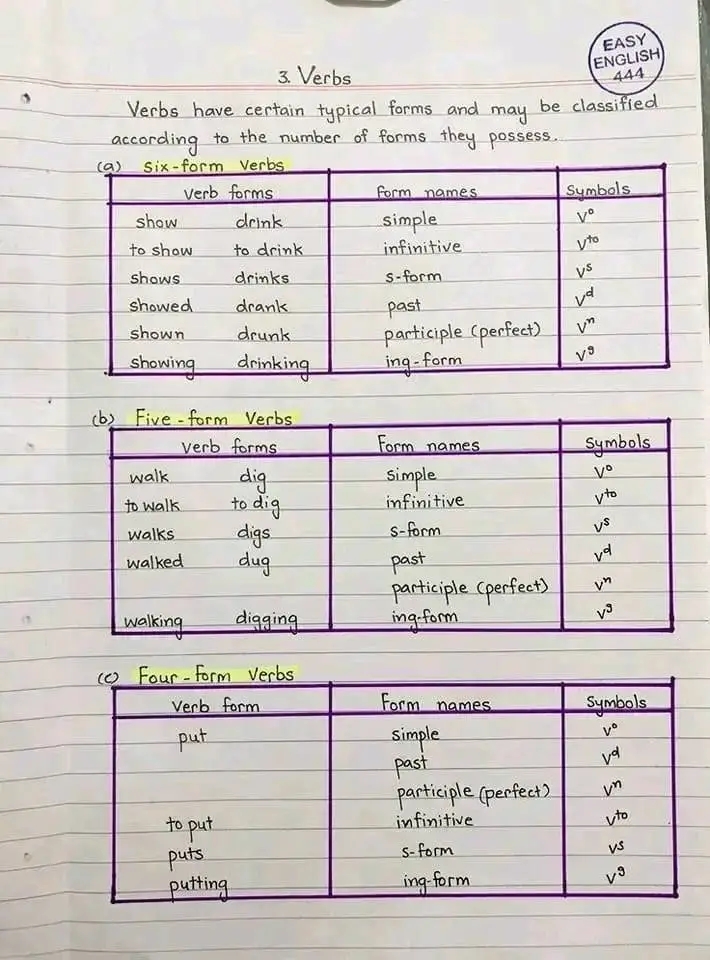 EASY
ENGLISH
444
3. Verbs
Verbs have certain typical forms and may be classified
according to the number of forms they possess.
(a) Six-form Verbs
Verb forms Form names Symbols
show drink simple V⁰
to show to drink infinitive Vᵗᵒ
shows drinks s-form Vˢ
showed drank past Vᵈ
shown drunk participle (perfect) Vⁿ
showing drinking ing-form Vᵍ
(b) Five-form Verbs
Verb forms Form names Symbols
walk dig simple V⁰
to walk to dig infinitive Vᵗᵒ
walks digs s-form Vˢ
walked dug past Vᵈ
participle (perfect) Vⁿ
walking digging ing-form Vᵍ
(c) Four-form Verbs
Verb form Form names Symbols
put simple V⁰
past Vᵈ
participle (perfect) Vⁿ
to put infinitive Vᵗᵒ
puts s-form Vˢ
putting ing-form Vᵍ